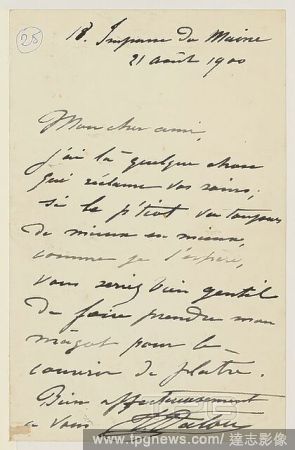 (28)
18. Impasse du Maine
21 août 1900
Mon cher ami,
j'ai là quelque chose
qui réclame vos soins;
si le p'tiot va toujours
de mieux en mieux,
comme je l'espère,
vous seriez bien gentil
de faire prendre mon
magot pour le
couvrir de plâtre.
Bien affectueusement
à vous
www.tpgnews.com 達志影像